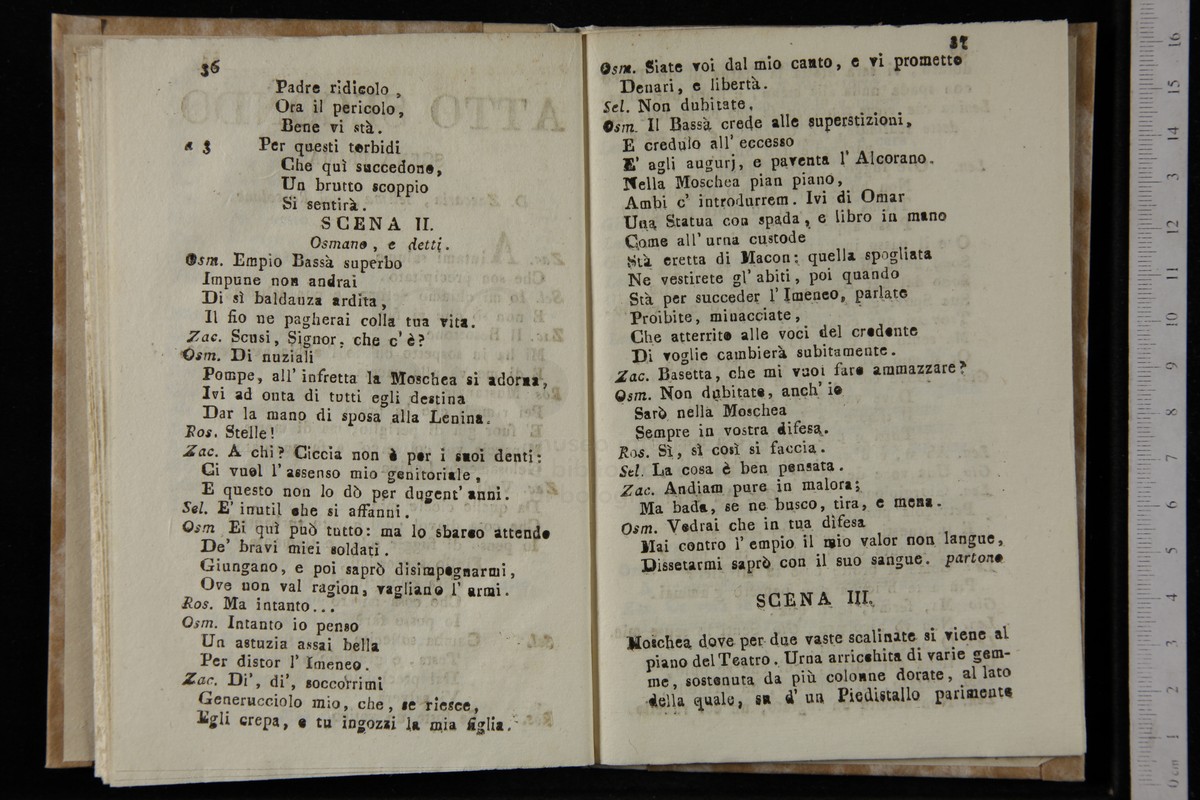 36
Padre ridicolo,
Ora il pericolo,
Bene vi stà.
a 3 Per questi torbidi
Che quì succedono,
Un brutto scoppio
Si sentirà.
SCENA II.
Osmano, e detti.
Osm. Empio Bassà superbo
Impune non andrai
Di sì baldanza ardita,
Il fio ne pagherai colla tua vita.
Zac. Scusi, Signor, che c'è?
Osm. Di nuziali
Pompe, all'infretta la Moschea si adorna,
Ivi ad onta di tutti egli destina
Dar la mano di sposa alla Lenina.
Ros. Stelle!
Zac. A chi? Ciccia non è per i suoi denti:
Ci vuol l'assenso mio genitoriale,
E questo non lo dò per dugent'anni.
Sel. E' inutil che si affanni.
Osm Ei quì può tutto: ma lo sbarco attendo
De' bravi miei soldati.
Giungano, e poi saprò disimpegnarmi,
Ove non val ragion, vagliano l'armi.
Ros. Ma intanto...
Osm. Intanto io penso
Un astuzia assai bella
Per distor l'Imeneo.
Zac. Di', di', soccorrimi
Generucciolo mio, che, se riesce,
Egli crepa, e tu ingozzi la mia figlia.
37
Osm. Siate voi dal mio canto, e vi prometto
Denari, e libertà.
Sel. Non dubitate,
Osm. Il Bassà crede alle superstizioni,
E credulo all'eccesso
E' agli augurj, e paventa l'Alcorano.
Nella Moschea pian piano,
Ambi c'introdurrem. Ivi di Omar
Una Statua con spada, e libro in mano
Come all'urna custode
Stà eretta di Macon: quella spogliata
Ne vestirete gl'abiti, poi quando
Stà per succeder l'Imeneo, parlate
Proibite, minacciate,
Che atterrito alle voci del credente
Di voglie cambierà subitamente.
Zac. Basetta, che mi vuoi fare ammazzare?
Osm. Non dubitate, anch'io
Sarò nella Moschea
Sempre in vostra difesa.
Ros. Sì, sì così si faccia.
Sel. La cosa è ben pensata.
Zac. Andiam pure in malora;
Ma bada, se ne busco, tira, e mena.
Osm. Vedrai che in tua difesa
Mai contro l'empio il mio valor non langue,
Dissetarmi saprò con il suo sangue. partono
SCENA III.
Moschea dove per due vaste scalinate si viene al
piano del Teatro. Urna arricchita di varie gem-
me, sostenuta da più colonne dorate, al lato
della quale, su d'un Piedistallo parimente